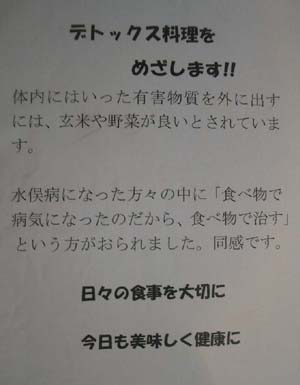 デトックス料理を
めざします!!
体内にはいった有害物質を外に出す
には、玄米や野菜が良いとされていま
す。
水俣病になった方々の中に「食べ物で
病気になったのだから、食べ物で治す」
という方がおられました。同感です。
日々の食事を大切に
今日も美味しく健康に